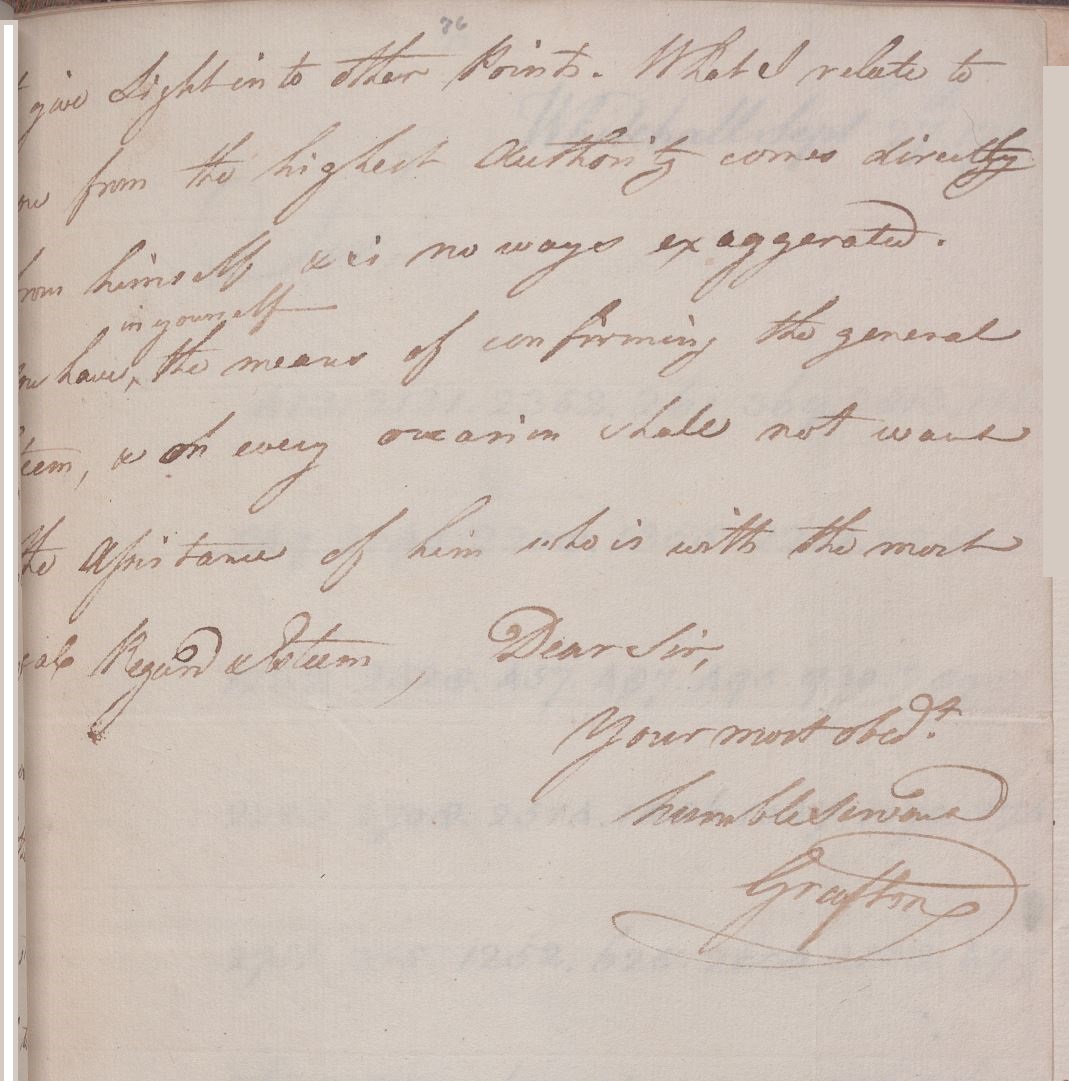 76
give Light into other Points. What I relate to
from the highest Authority comes directly
from himself & is no ways exaggerated.
in yourself
have, the means of confirming the general
teem, & on every occasion shall not want
the Assistance of him who is with the most
Regard & Esteem, Dear Sir,
Your most obed.t
humble Servant
Grafton